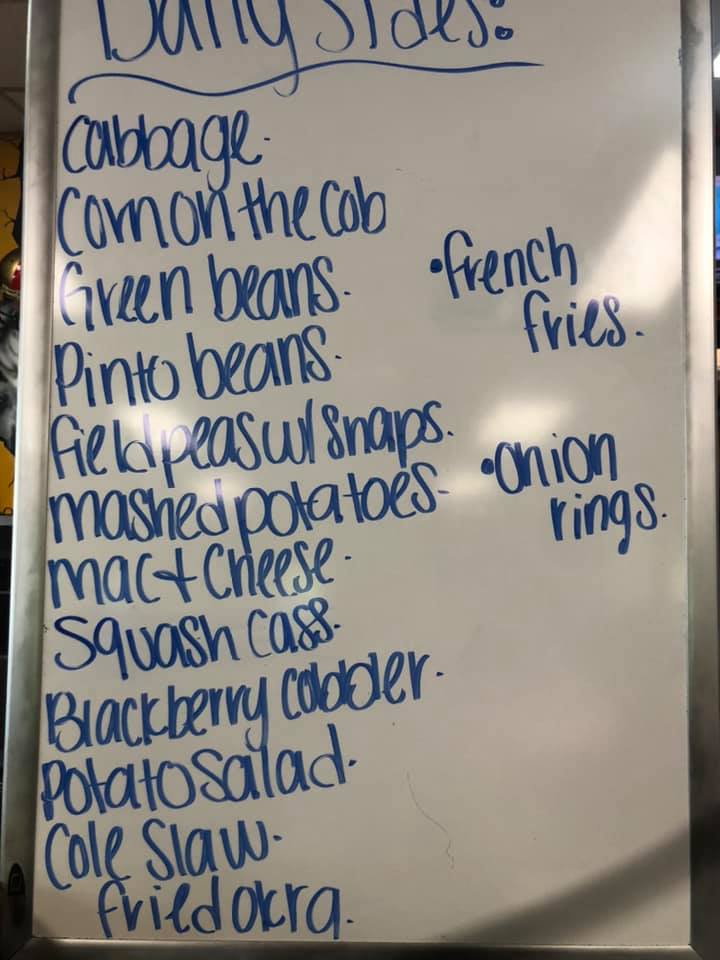 Daily Sides:
Cabbage.
Corn on the Cob
Green beans.
Pinto beans.
field peas w/ snaps.
mashed potatoes.
mac + Cheese.
Squash Cass.
Blackberry Cobbler.
Potato Salad.
Cole Slaw.
fried okra.
• french
fries.
• onion
rings.